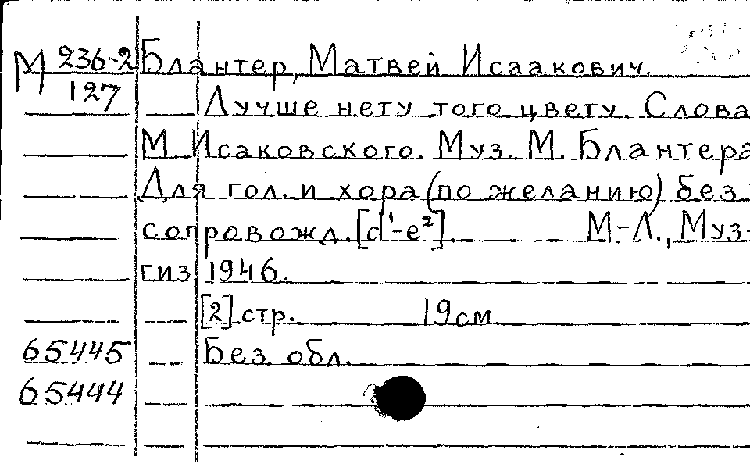 М 236-2 Блантер, Матвей Исаакович.
127 Лучше нету того цвету. Слова
М. Исаковского. Муз. М. Блантера
Для гол. и хора (по желанию) без
сопровожд. [d¹-e²]. М.-Л., Муз-
гиз, 1946.
[2] стр. 19см
65445 Без обл.
65444